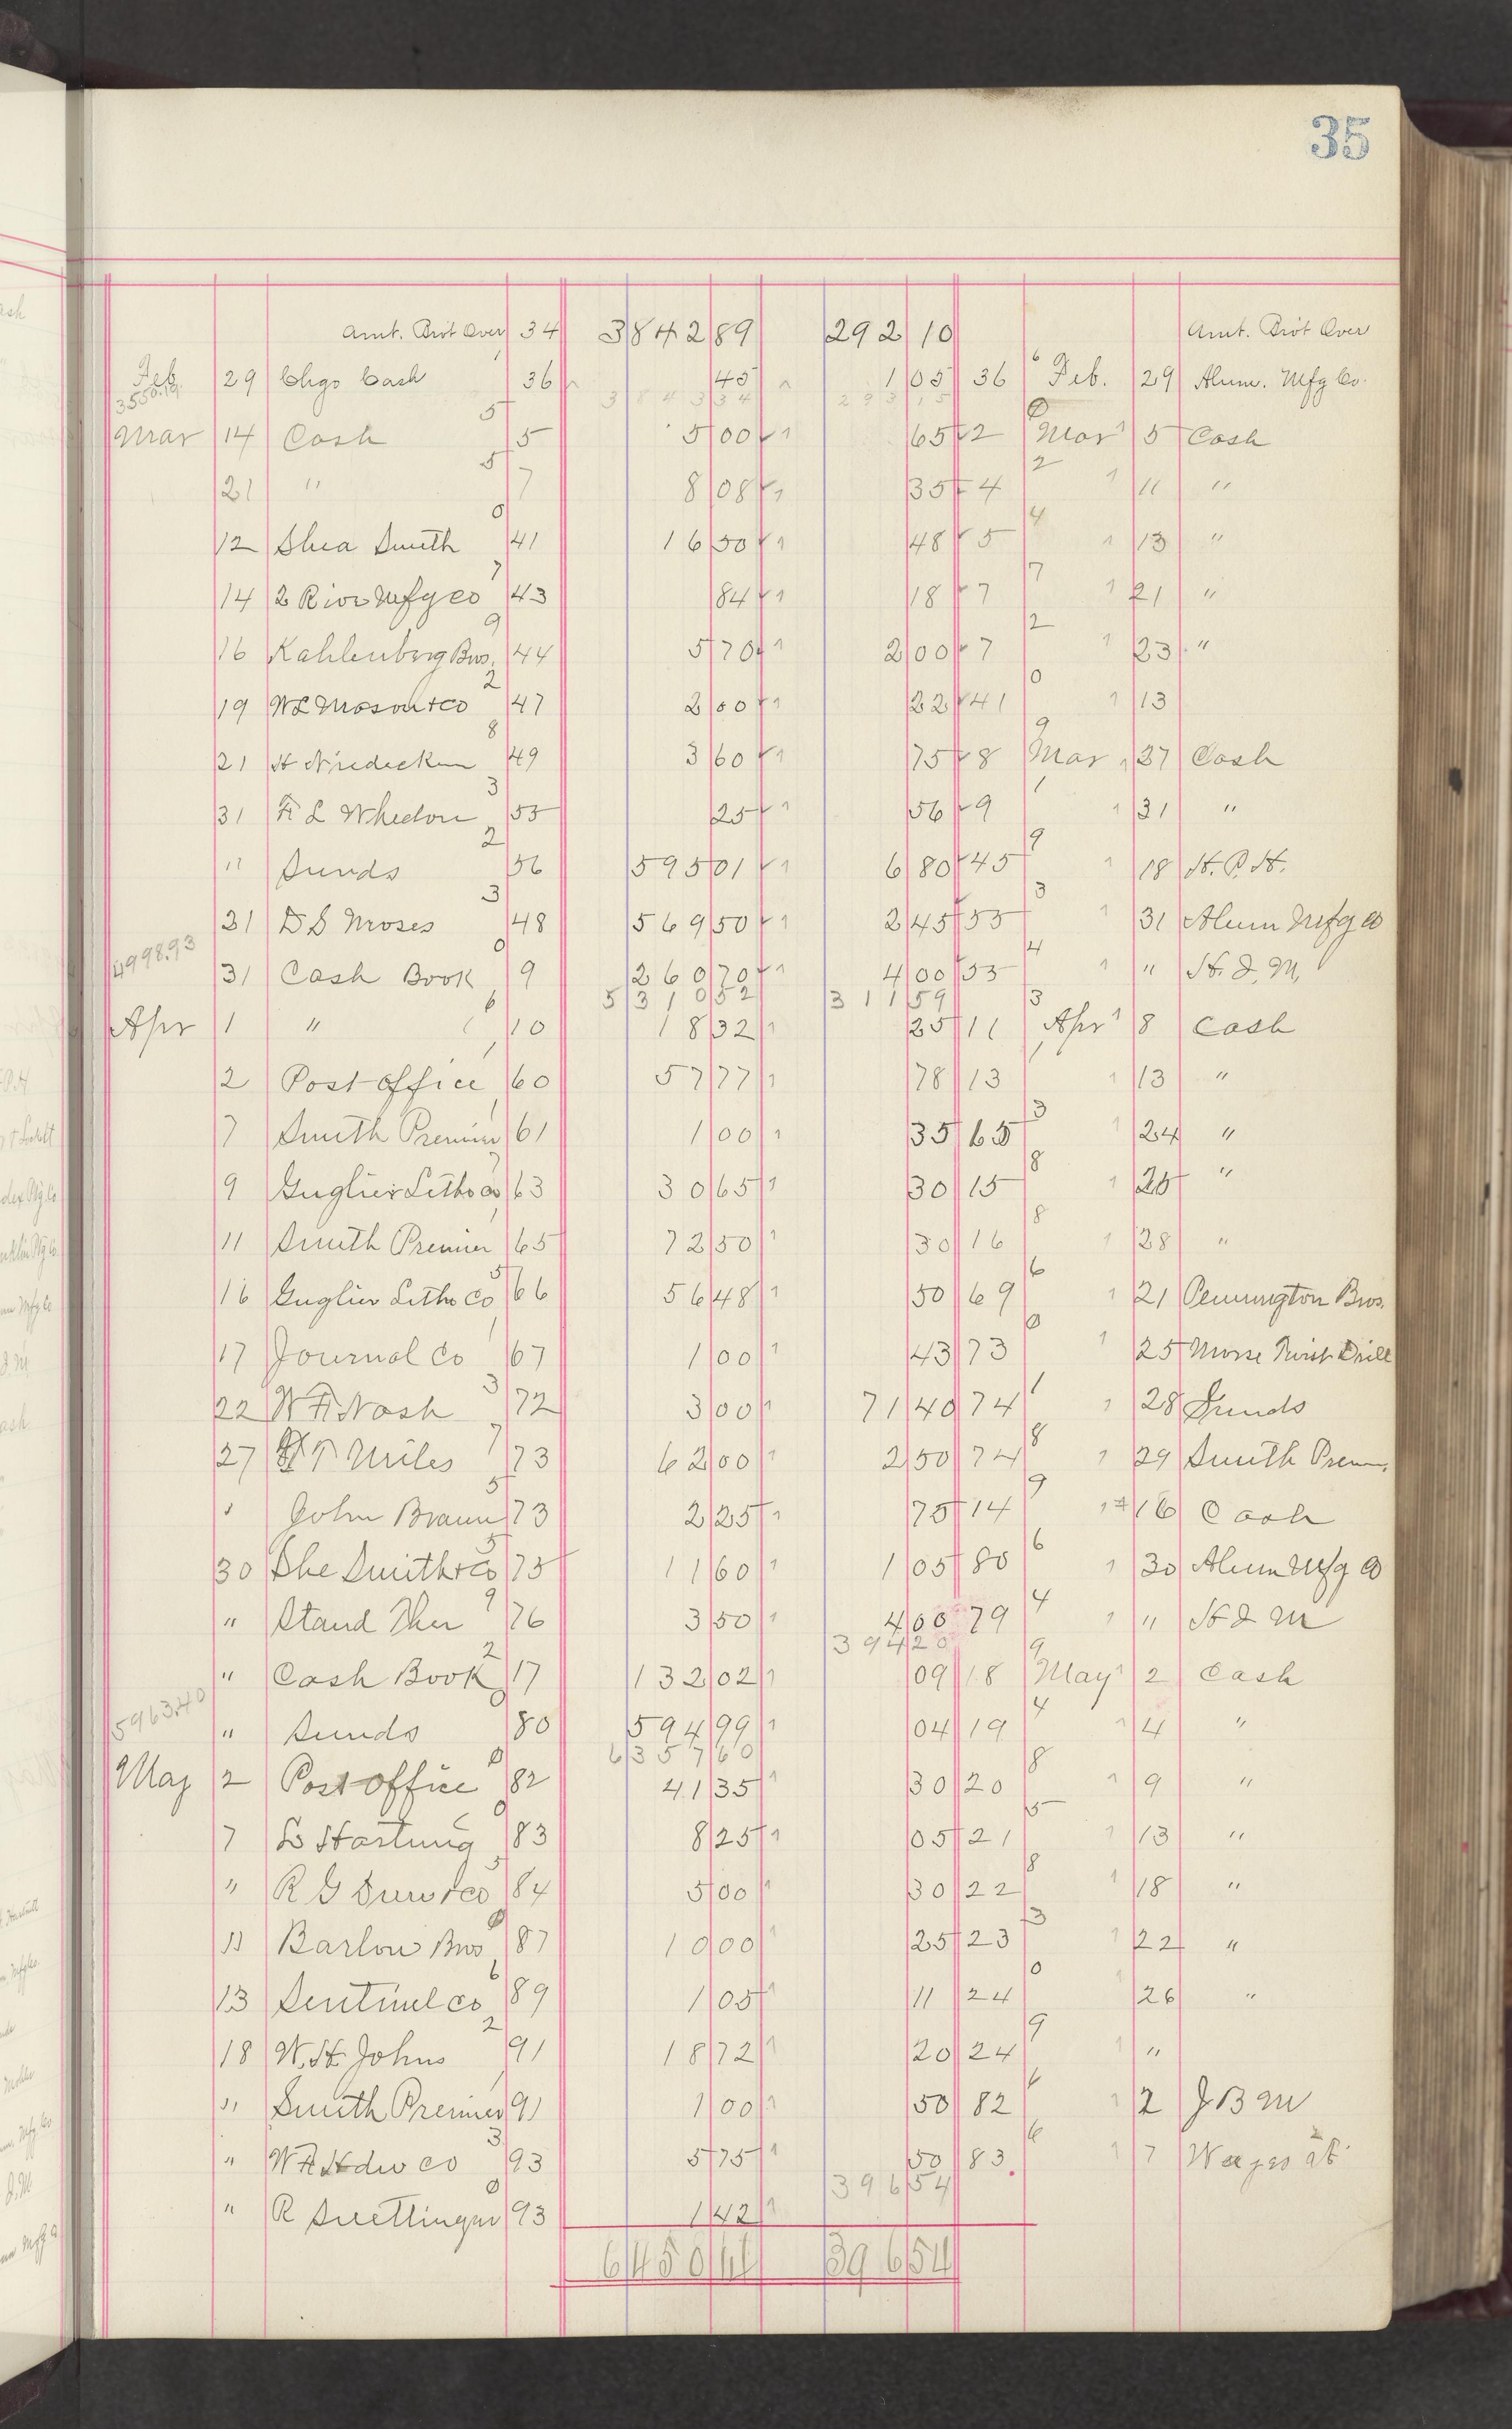 35
Amt. Brot Over 34 3842 89 292 10 Amt. Brot Over
Feb 29 Chgo Cash 36 45 1 05 36 Feb. 29 Alum. Mfg Co.
3550.19 3843 34 293 15
Mar 14 Cash 5 5 00 65 2 Mar 5 Cash
21 " 7 8 08 35 4 11 "
12 Shea Smith 41 16 50 48 5 13 "
14 2 River Mfg Co 43 84 18 7 21 "
16 Kahlenberg Bros. 44 5 70 2 00 7 23 "
19 W L Mason + Co 47 2 00 22 41 13
21 H Niedecken 49 3 60 75 8 Mar 27 Cash
31 F L Whedon 53 25 56 9 31 "
" Sunds 56 595 01 6 80 45 18 H. P. H.
31 D S Moses 48 569 50 2 45 53 31 Alum Mfg Co
4998.93 31 Cash Book 9 260 70 4 00 53 " H. J. M.
5310 52 311 59
Apr 1 " 10 18 32 25 11 Apr 8 Cash
2 Post office 60 57 77 78 13 13 "
7 Smith Premier 61 1 00 35 65 24 "
9 Gugler Litho Co 63 30 65 30 15 25 "
11 Smith Premier 65 72 50 30 16 28 "
16 Gugler Litho Co 66 56 48 50 69 21 Pennington Bros.
17 Journal Co 67 1 00 43 73 25 Morse Twist Drill
22 W F Nash 72 3 00 71 40 74 28 Sunds
27 T Miles 73 62 00 2 50 74 29 Smith Prem.
" John Braun 73 2 25 75 14 16 Cash
30 She Smith + Co 75 11 60 1 05 80 30 Alum Mfg Co
" Stand Ther 76 3 50 4 00 79 " H J M
394 20
" Cash Book 17 132 02 09 18 May 2 Cash
5963.40 " Sunds 80 594 99 04 19 4 "
6357 60
May 2 Post office 82 41 35 30 20 9 "
7 L Hartung 83 8 25 05 21 13 "
" R G Dun + Co 84 5 00 30 22 18 "
11 Barlow Bros 87 10 00 25 23 22 "
13 Sentinel Co 89 1 05 11 24 26 "
18 W. H. Johns 91 18 72 20 24 "
" Smith Premier 91 1 00 50 82 2 J B M
" W F Hdw Co 93 5 75 50 83 7 Wages
396 54
" R Suettinger 93 1 42
6450 14 396 54